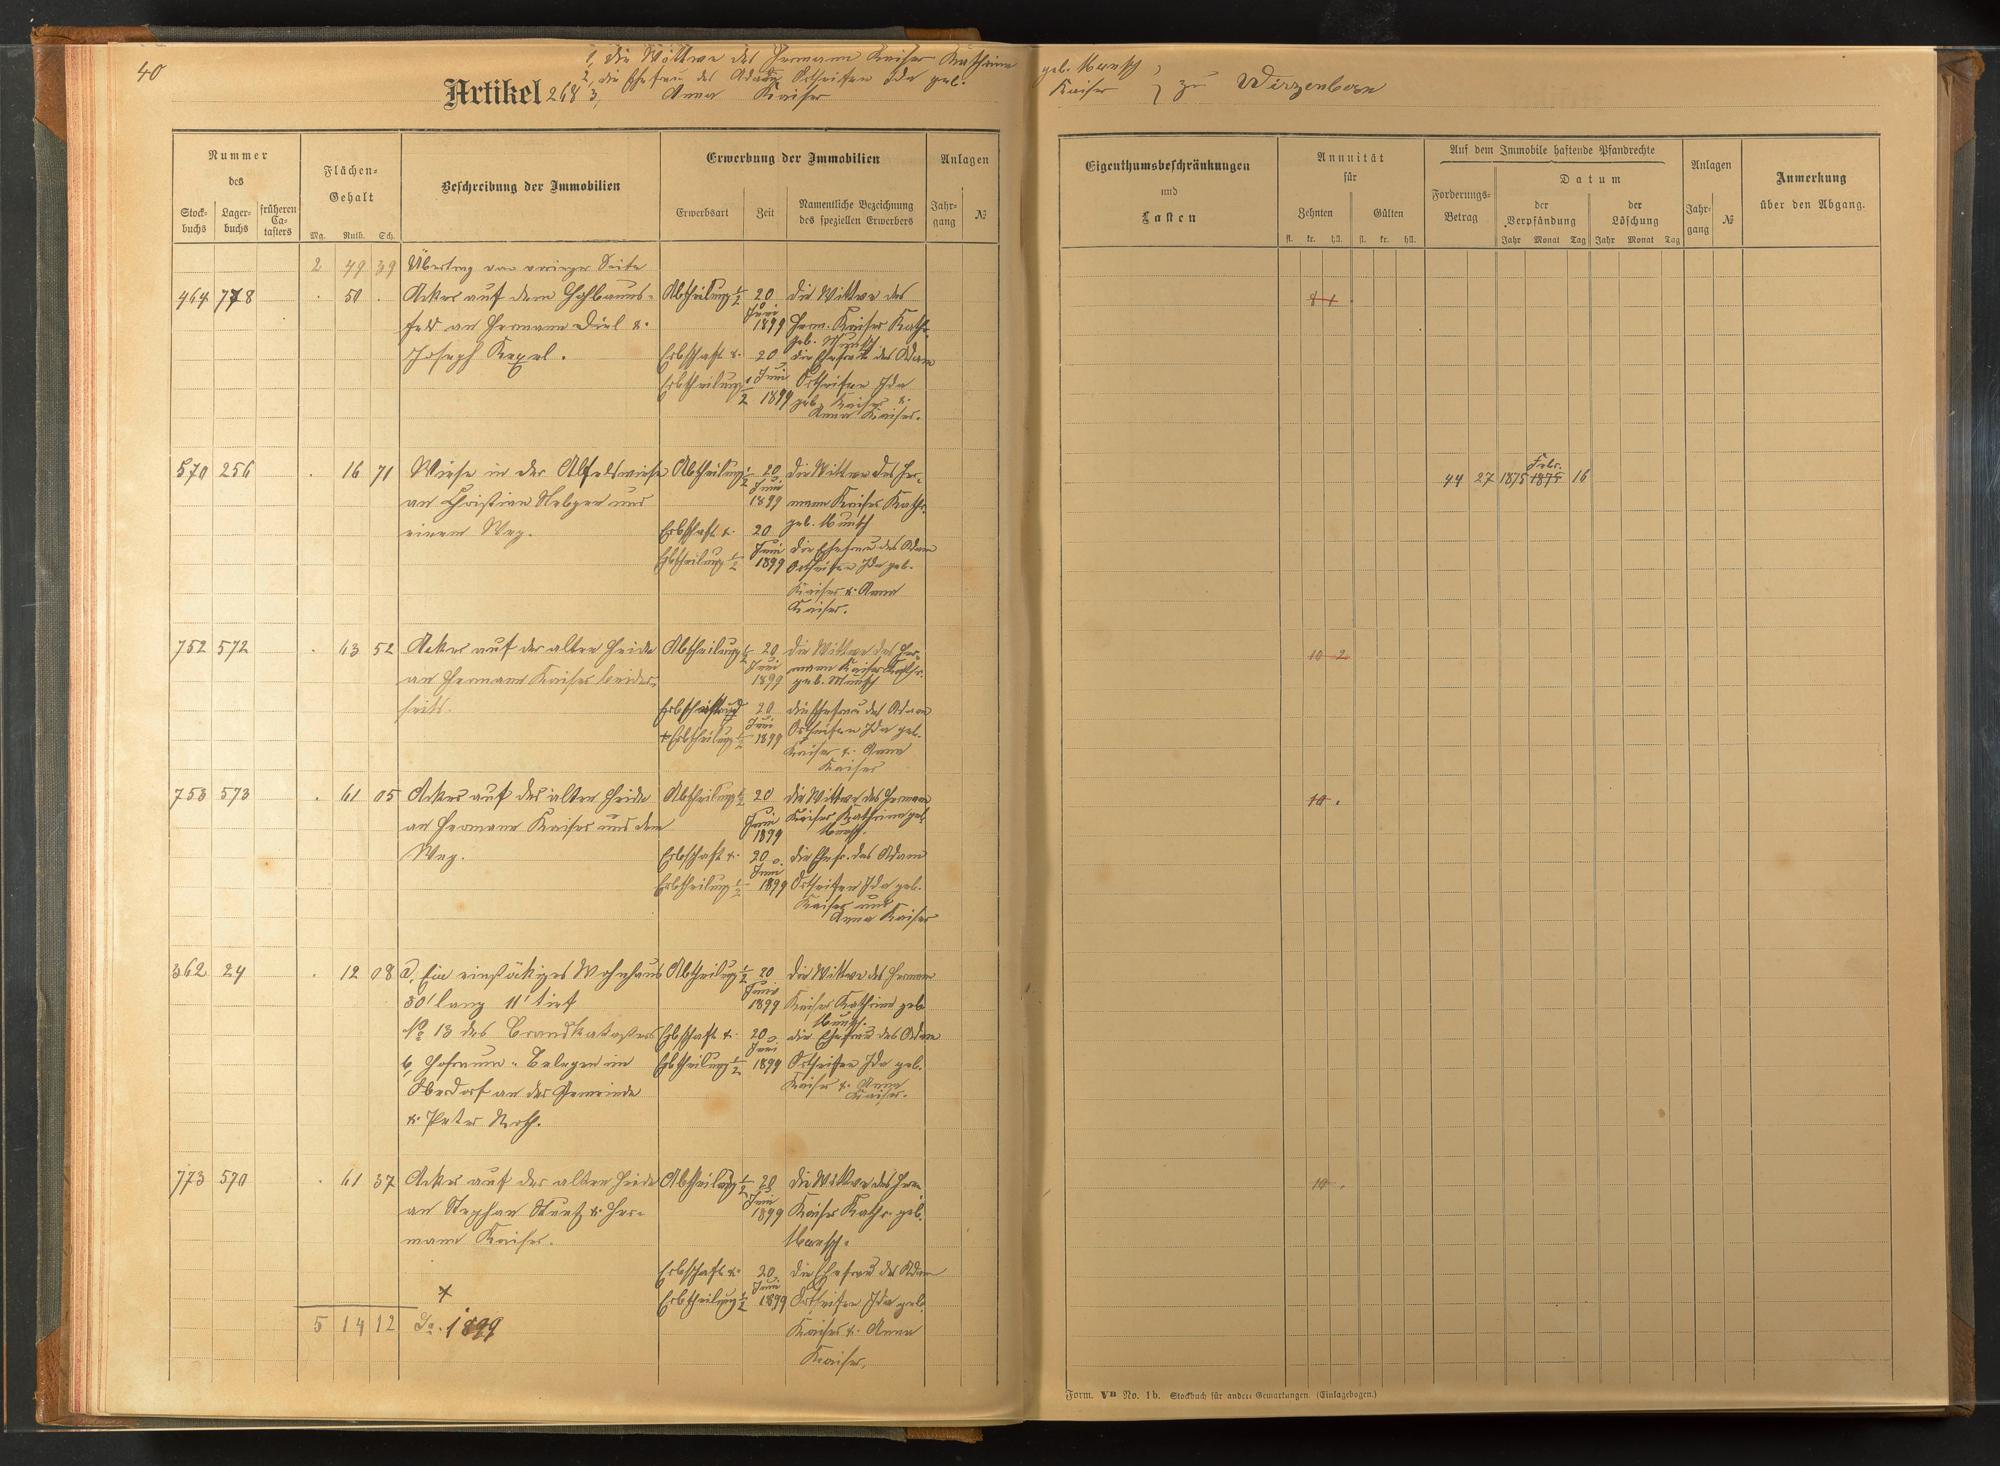 40
1, die Wittwe des Hermann Kaiser Katharine geb. Muesch
2, die Ehefrau des Adam Ortseifen Ida geb. Kaiser
Artikel 268 3, Anna Kaiser
zu Wirzenborn
Nummer des
Stockbuchs
Lagerbuchs
früheren Catasters
Flächen-Gehalt
Mg. Ruth. Sch.
Beschreibung der Immobilien
Erwerbung der Immobilien
Erwerbsart
Zeit
Namentliche Bezeichnung des speziellen Erwerbers
Anlagen
Jahrgang
№
Eigenthumsbeschränkungen und Lasten
Annuität für
Zehnten
Gülten
fl. kr. hll. fl. kr. hll.
Auf dem Immobile haftende Pfandrechte
Forderungs-Betrag
Datum
der Verpfändung
der Löschung
Jahr Monat Tag Jahr Monat Tag
Anlagen
Jahrgang
№
Anmerkung über den Abgang.
2 49 39 Übertrag von voriger Seite
464 778 . 50 . Acker auf dem Hohlbaums-
feld an Hermann Diel &
Joseph Kexel.
Abtheilung 1/2 20 Juni 1899 die Wittwe des
Herm. Kaiser Kath.
geb. Muesch
Erbschaft & Erbtheilung 1/2 20 Juni 1899 die Ehefrau des Adam
Ortseifen Ida
geb. Kaiser &
Anna Kaiser.
8 1
570 256 . 16 71 Wiese in der
an Christian und
einem Weg.
Abtheilung 1/2 20 Juni 1899 die Wittwe des Her-
mann Kaiser Kath.
geb. Muesch
Erbschaft & Erbtheilung 1/2 20 Juni 1899 die Ehefrau des Adam
Ortseifen Ida geb.
Kaiser & Anna
Kaiser.
44 27 1875 Febr. 1875 16
752 572 . 63 52 Acker auf der alten Heide
an Hermann Kaiser beider-
seits.
Abtheilung 1/2 20 Juni 1899 die Wittwe des Her-
mann Kaiser Kathr.
geb. Muesch
Erbschaft und
& Erbtheilung 1/2 20 Juni 1899 die Ehefrau des Adam
Ortseifen Ida geb.
Kaiser & Anna
Kaiser
10 2
753 573 . 61 05 Acker auf der alten Heide
an Hermann Kaiser und dem
Weg.
Abtheilung 1/2 20 Juni 1899 die Wittwe des Hermann
Kaiser Katharine geb.
Muesch.
Erbschaft & Erbtheilung 1/2 20 Juni 1899 die Ehefr. des Adam
Ortseifen Ida geb.
Kaiser und
Anna Kaiser
10 .
362 24 . 12 08 a, Ein einstöckiges Wohnhaus
30' lang 11' tief
№ 13 des Brandkatasters
b, Hofraum. Belegen im
Oberdorf an der Gemeinde
& Peter Noll.
Abtheilung 1/2 20 Juni 1899 die Wittwe des Hermann
Kaiser Katharine geb.
Muesch.
Erbschaft & Erbtheilung 1/2 20 Juni 1899 die Ehefrau des Adam
Ortseifen Ida geb.
Kaiser & Anna
Kaiser.
773 570 . 61 37 Acker auf der alten Heide
an Stephan & Her-
mann Kaiser.
Abtheilung 1/2 20 Juni 1899 die Wittwe des Herm.
Kaiser Kathr. geb.
Muesch.
Erbschaft & Erbtheilung 1/2 20 Juni 1899 die Ehefrau des Adam
Ortseifen Ida geb.
Kaiser & Anna
Kaiser.
10 .
5 14 12 Sa. 1899
Form. VB No. 1b. Stockbuch für andere Gemarkungen. (Einlagebogen.)